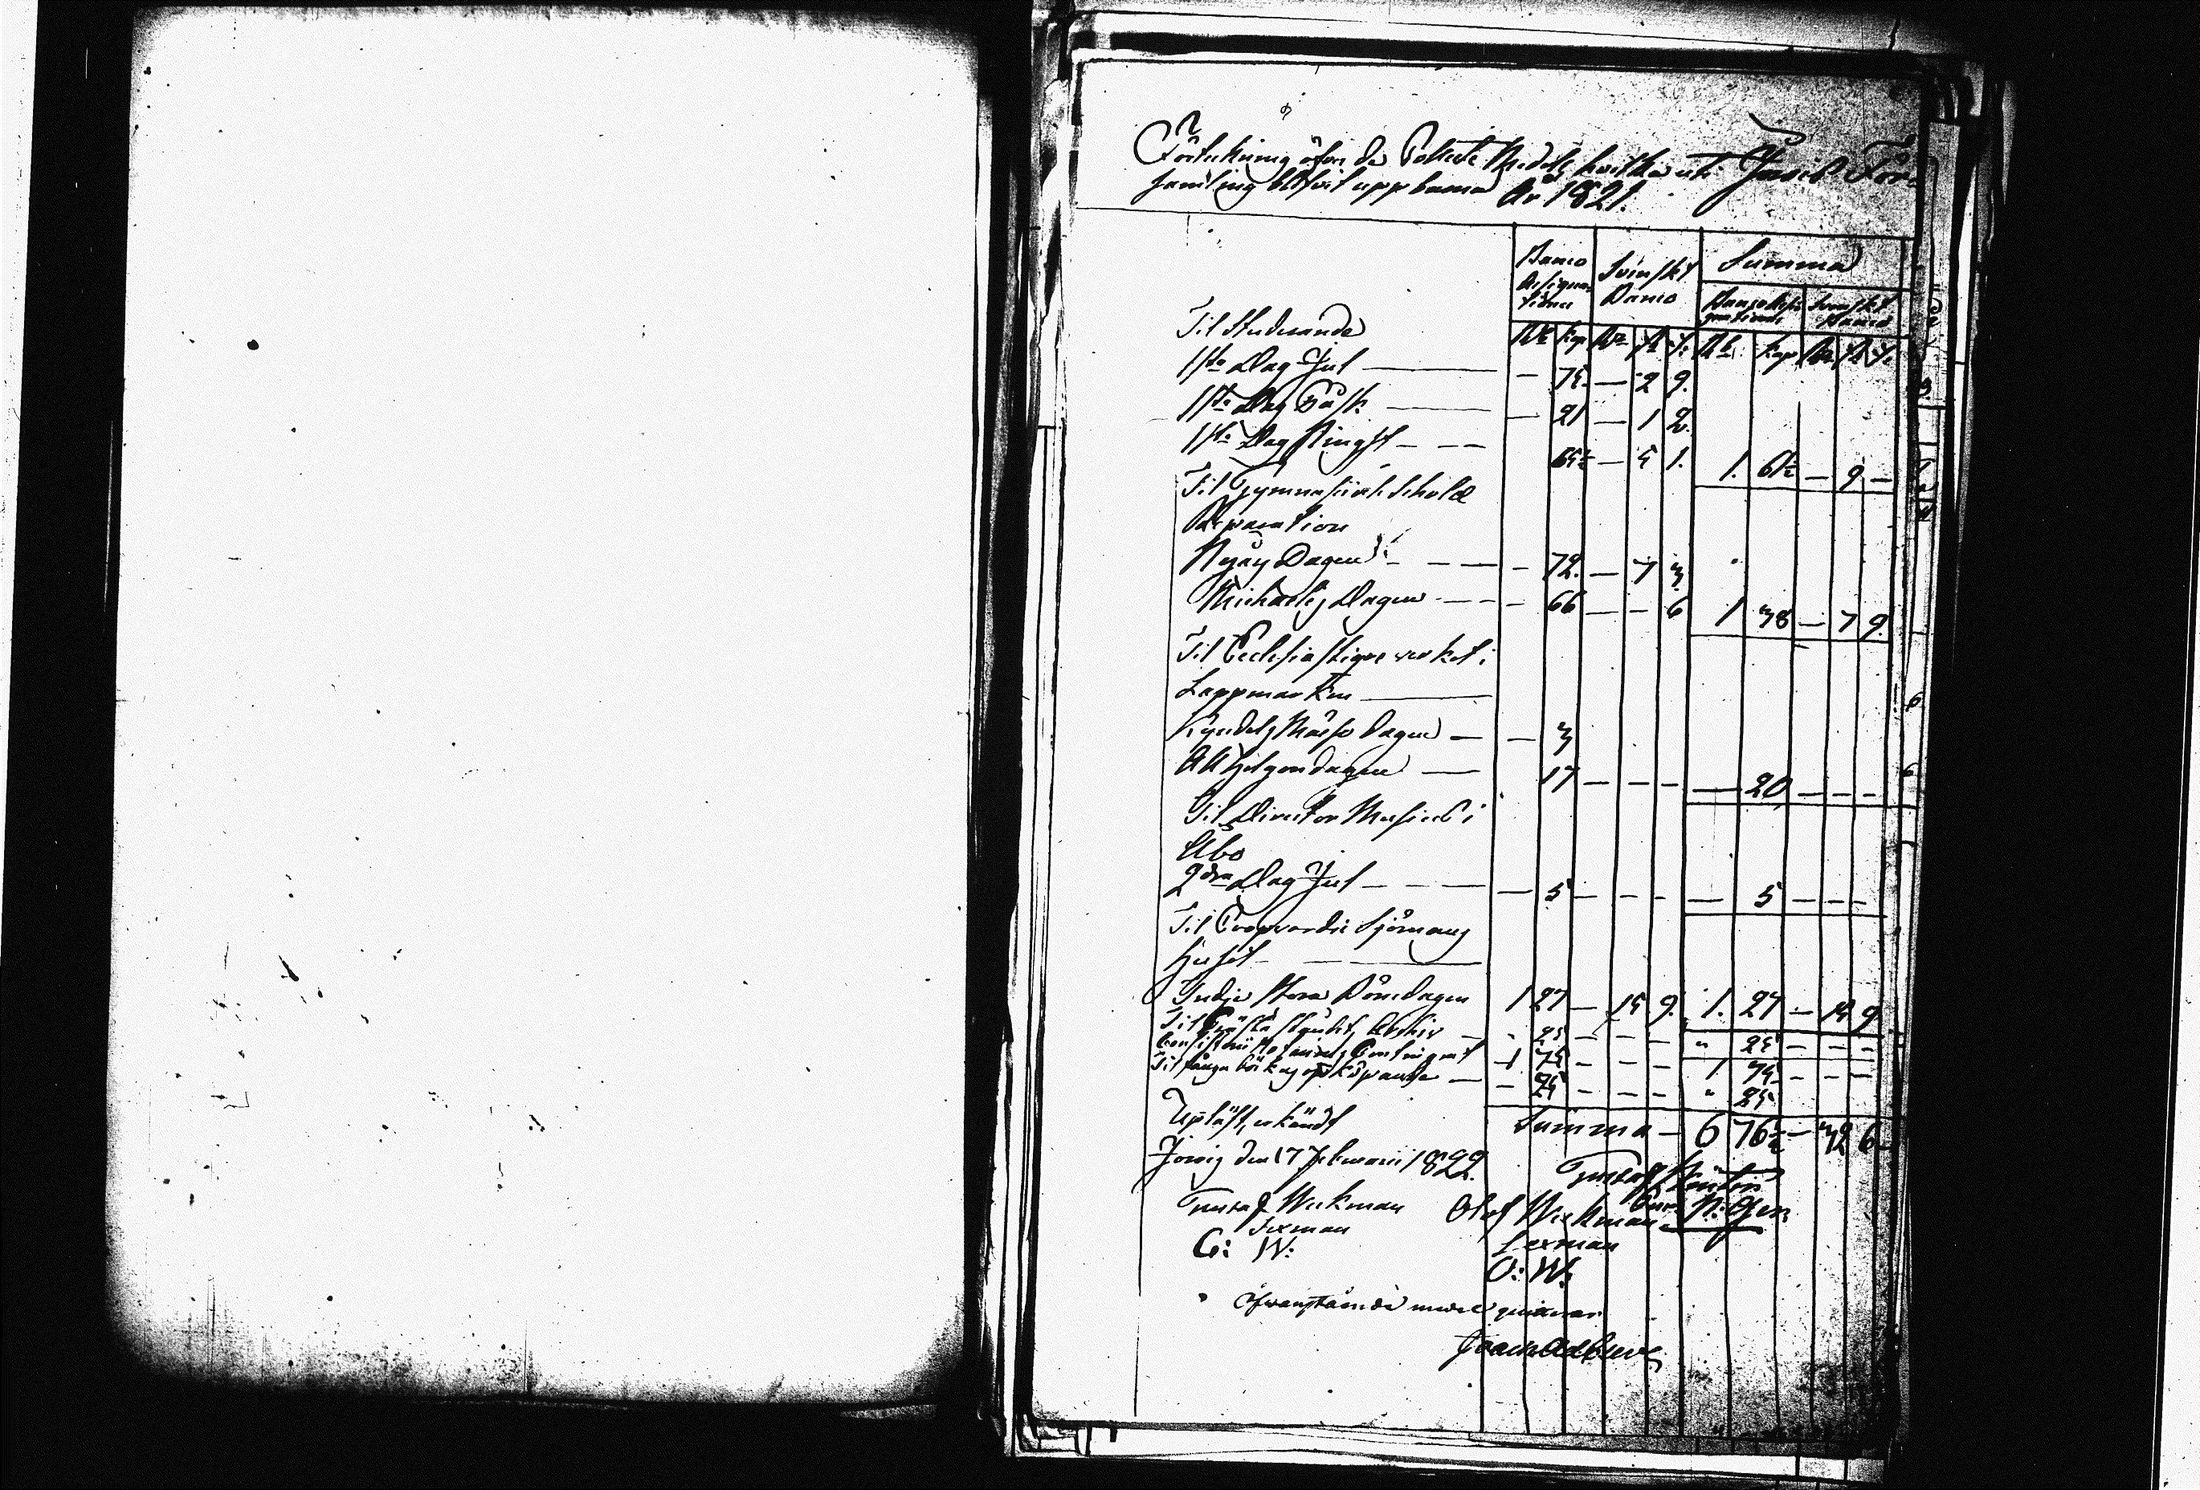 Förtekning öfver de Collect Medel, hvilka uti Jowis För-
samling blifvit uppburna År 1821.
Banco Assignationer
Svenskt Banco
Summa
Banco Assignationer
Svenskt Banco
Til Studerande
Rb kop Rd sk rs Rb kop Rd sk rs
1sta Dag Jul — — 75. — 2 9.
1sta Dag Påsk — — 21 — 1 2.
1sta Dag Pingst — — — 65½ — 5 1. 1. 61½ — 9 —
Til Gymnasii och Schole
Reparation
Nyårs Dagen — — — — 72. — 7 3
Michaelis Dagen — — — 66 — — 6 1 38 — 7 9.
Til Ecclesiastique verket i
Lappmarken —
Kyndels Mässo Dagen — — 3
Allhelgondagen — 17 — — — — 20 — — —
Til Director Musices i
Åbo
2dra Dag Jul — — — — 5 — — — — 5 — — —
Til Coopvardie Sjömans
Huset — —
Tredje Stora Bönedagen 1 27 — 15 9. 1. 27 — 15 9
— 25 — — — " 25 — — —
1 75 — — — 1 75 — — —
— 25 — — — " 25
Upläst, erkändt Summa — 6 76½ — 32 6
Jowis den 17 Februarii 1822.
Gustaf Wekman
Sexman
G: W:
Olof Wekman
Sexman
O: W:
Ofvanstående medel quitteras